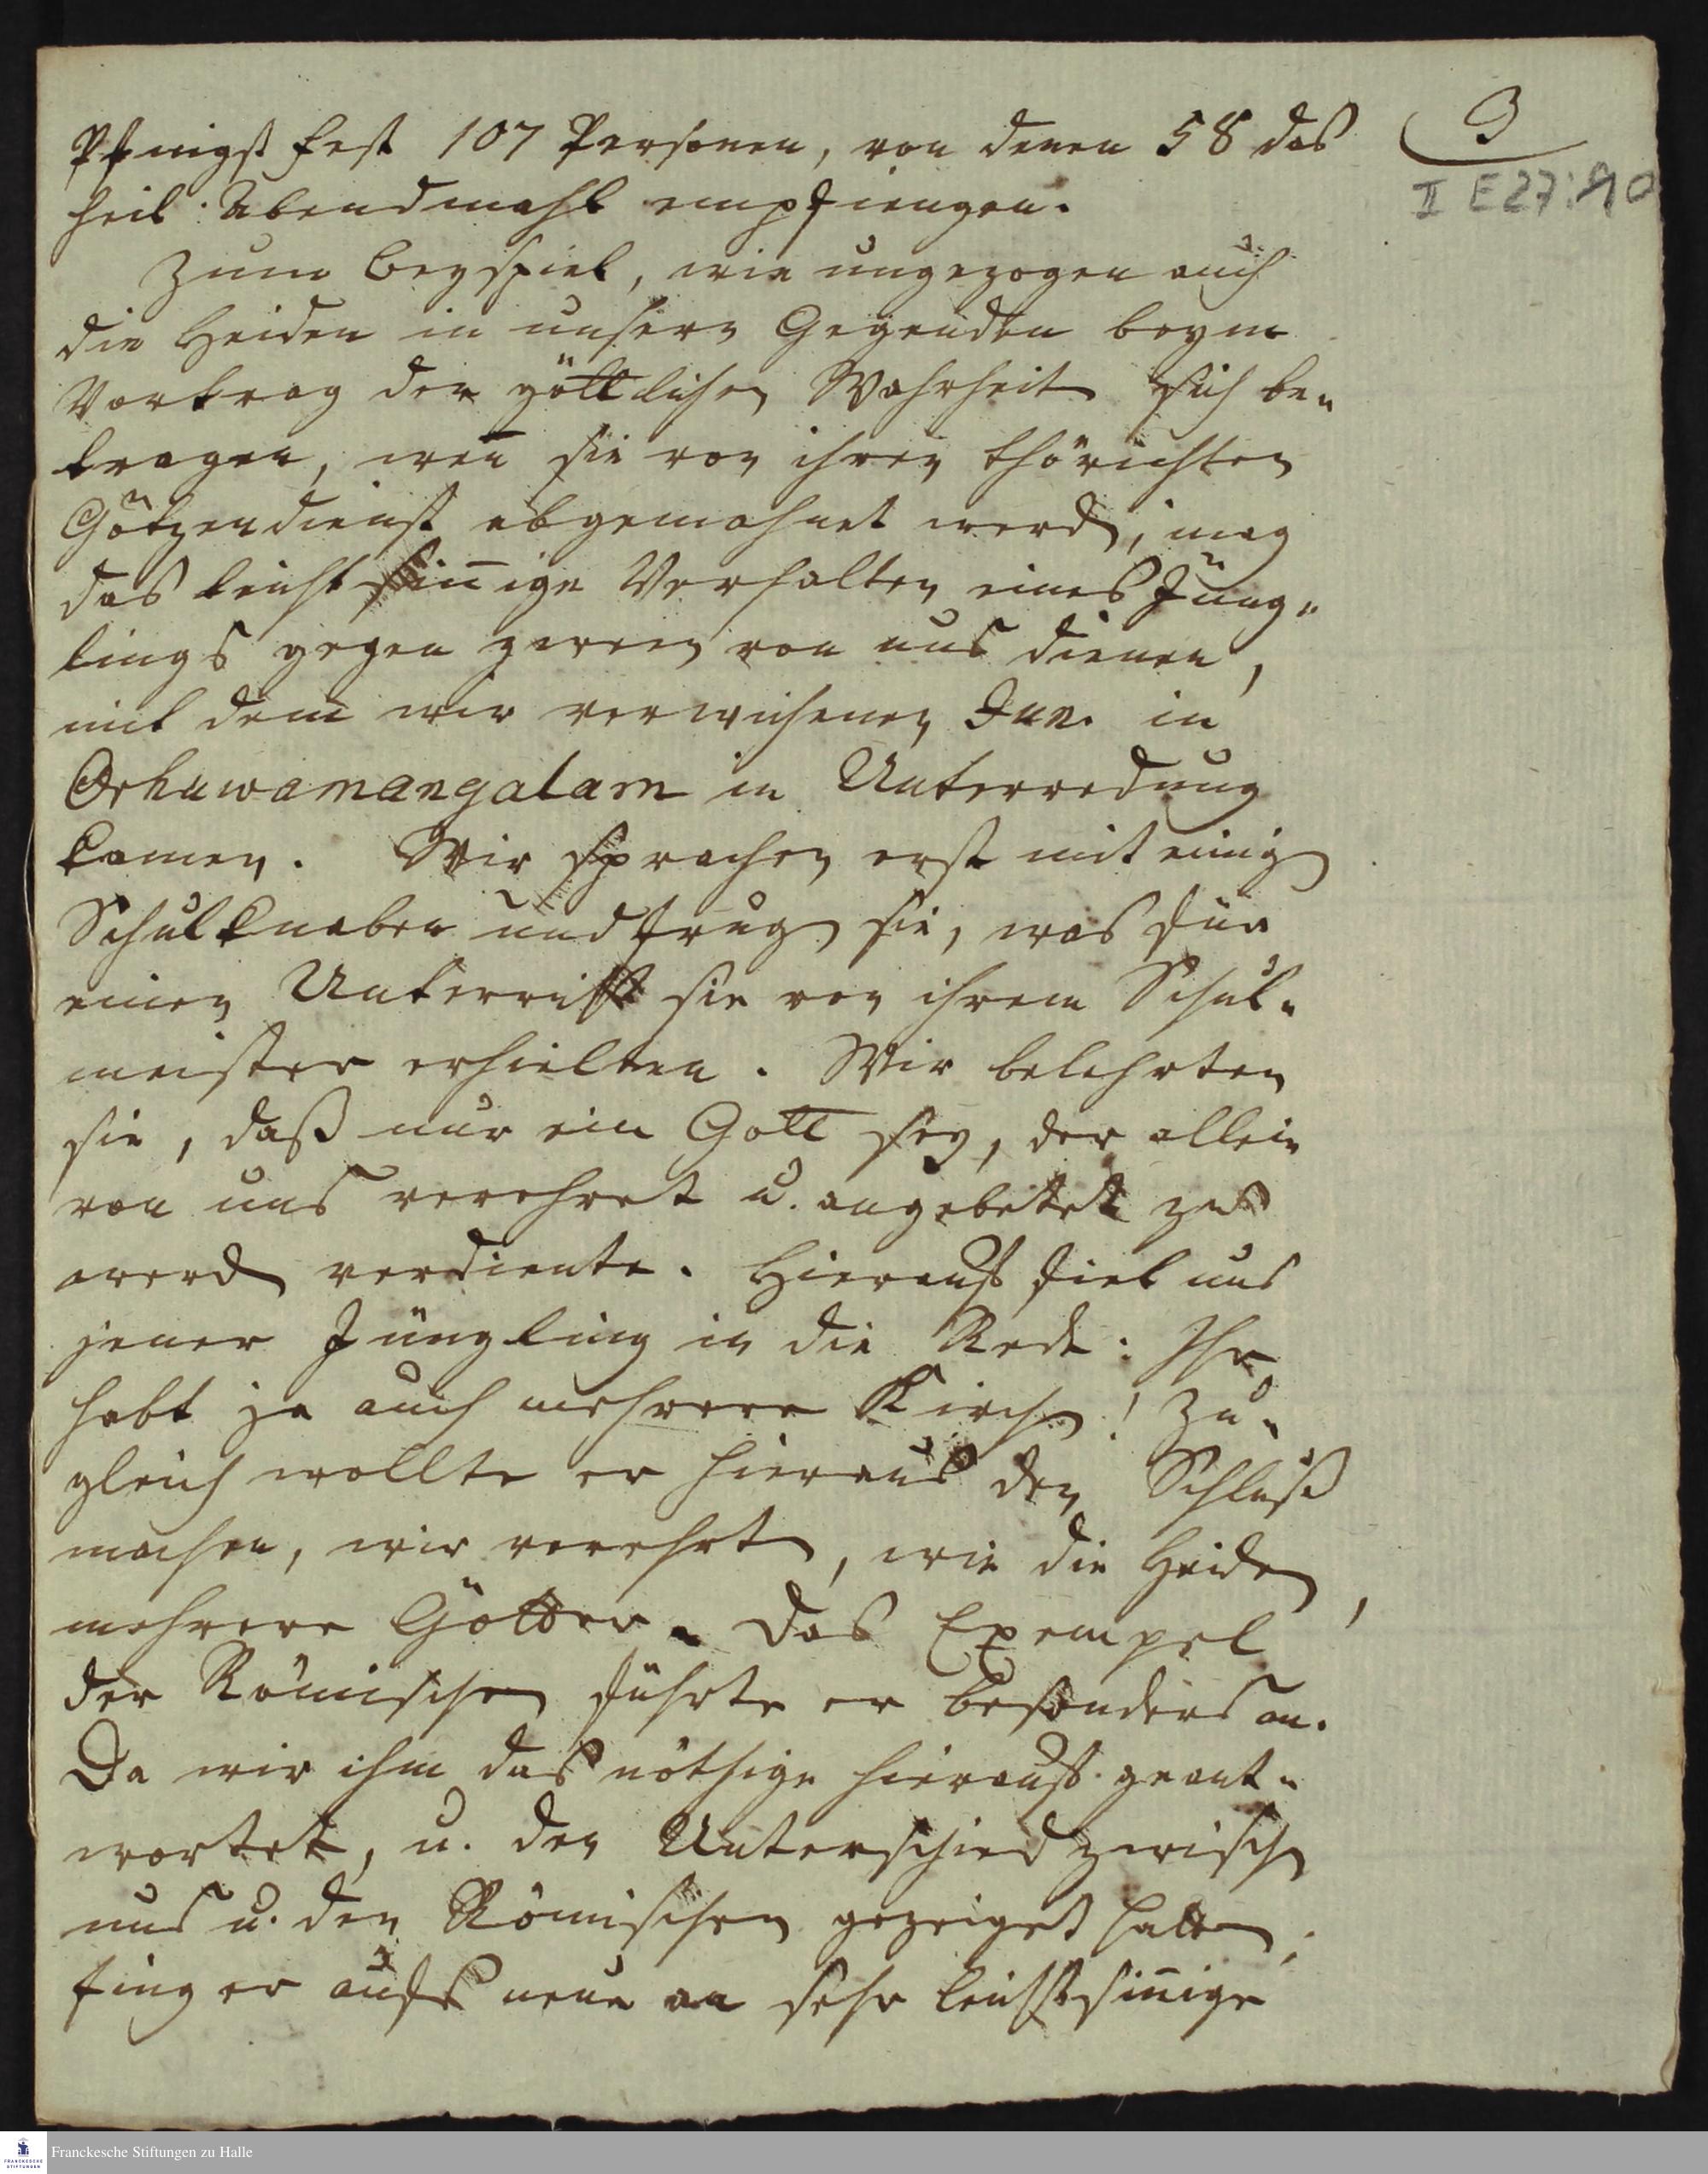 3
II E 27:90
Pfingst fest 107 Personen, von denen 58 das
heil. Abendmahl empfiengen.
Zum Beyspiel, wie ungezogen auch
die Heiden in unsern Gegenden beym
Vortrag der göttlichen Wahrheit sich be-
tragen, wen̄ sie von ihren thörichten
Götzendienst abgemahnet werden, mag
das leichtsin̄ige Verhalten eines Jüng-
lings gegen zween von uns dienen,
mit dem wir verwichenen Jan. in
Orhuwamangalam in Unterredung
kamen. Wir sprachen erst mit einigen
Schulknaben und frugen sie, was für
einen Unterricht sie von ihrem Schul-
meister erhielten. Wir belehrten
sie, daß nur ein Gott sey, der allein
von uns verehret u. angebetet zu
werden verdiente. Hierauf fiel uns
jener Jüngling in die Rede: Ihr
habt ja auch mehrere Kirchen! Zu-
gleich wollte er hieraus den Schluß
machen, wir verehrten, wie die Heiden,
mehrere Götter. Das Exempel
der Römischen führte er besonders an.
Da wir ihm das nöthige hierauf geant-
wortet, u. den Unterschied zwischen
uns u. den Römischen gezeiget hatten;
fing er aufs neue an sehr leichtsin̄ige
Franckesche Stiftungen zu Halle